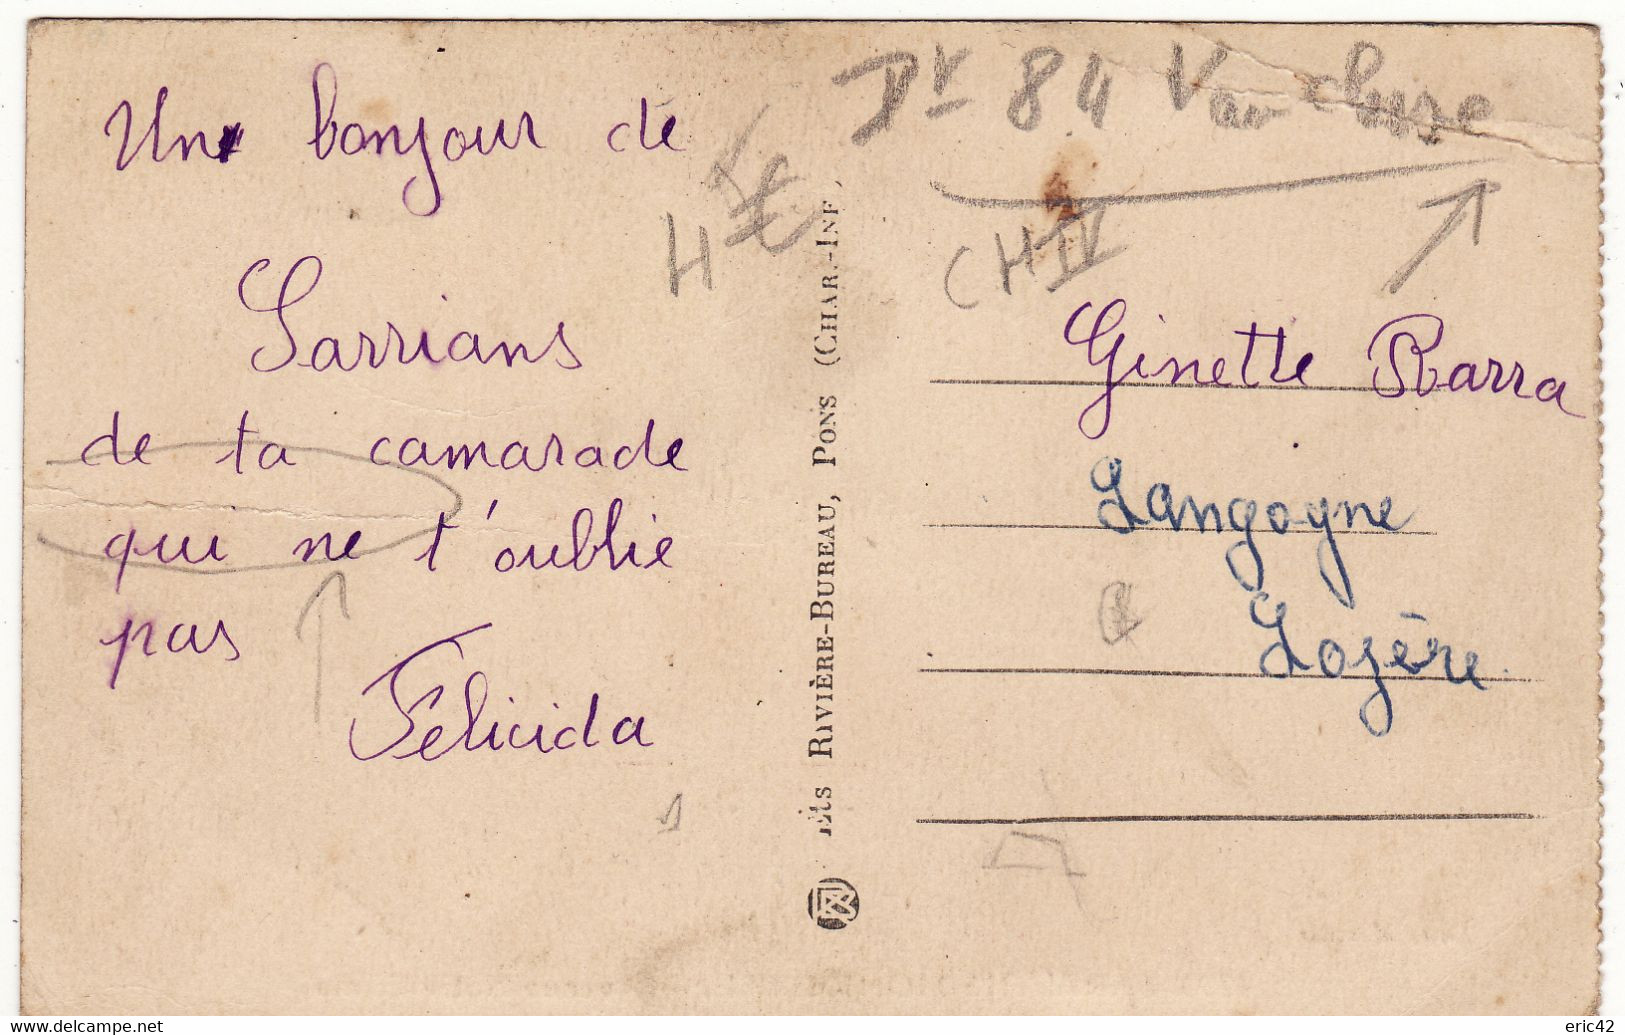 Un bonjour de
Sarrians
de ta camarade
qui ne t'oublie
pas
Félicida
Ets RIVIÈRE-BUREAU, PONS (CHAR.-INF.)
Dt 84 Vaucluse
4 €
CH IV
Ginette Barra
Langogne
Lozère
1
www.delcampe.net
eric42